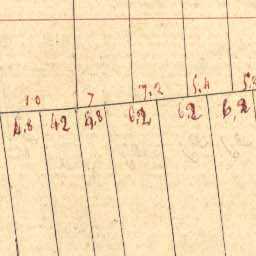 10 7 7.2 5.4
4.8 42 4.8 6.2 6.2 6.2